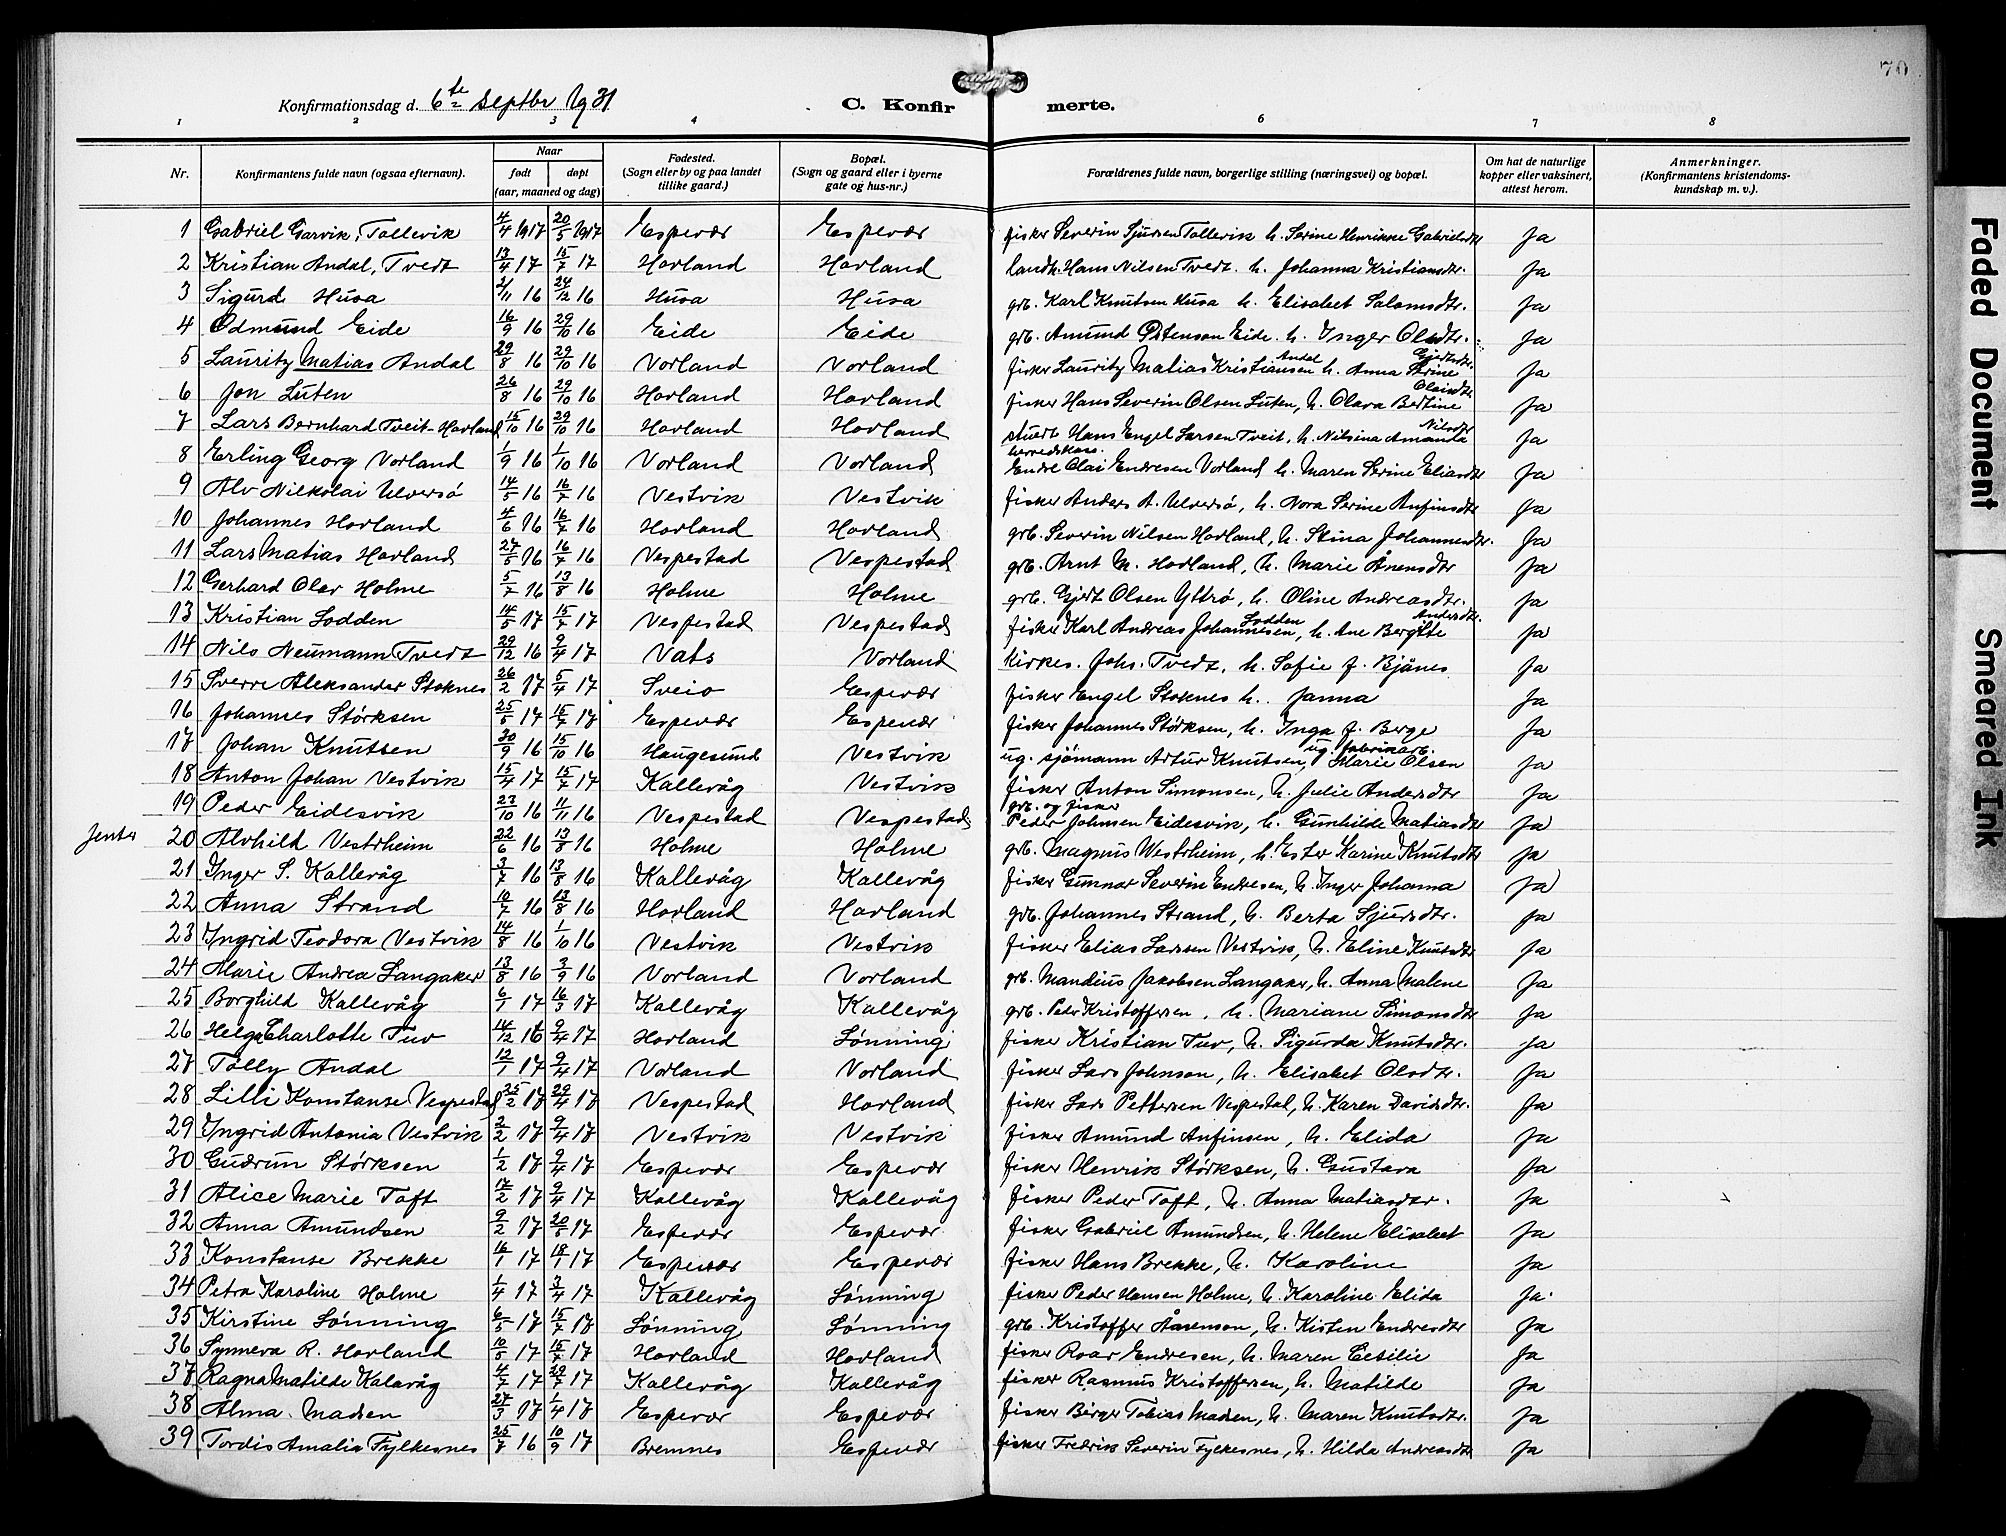 70
Konfirmationsdag d. 6te Septbr 1931 C. Konfirmerte.
1 2 3 4 5 6 7 8
Nr. Konfirmantens fulde navn (ogsaa efternavn). Naar født døpt (aar, maaned og dag) Fødested. (Sogn eller by og paa landet tillike gaard.) Bopæl. (Sogn og gaard eller i byerne gate og hus-nr.) Forældrenes fulde navn, borgerlige stilling (næringsvei) og bopæl. Om hat de naturlige kopper eller vaksinert, attest herom. Anmerkninger. (Konfirmantens kristendoms-kundskap m. v.).
1 Gabriel Garvik, Tollevik 4/4 1917 20/5 1917 Espevær Espevær fisker Severin Sjursen Tollevik h. Serine Henrikke Gabrielsdtr Ja
2 Kristian Andal, Tvedt 13/4 17 15/7 17 Hovland Hovland landh. Hans Nilsen Tvedt. h. Johanna Kristiansdtr. Ja
3 Sigurd Husa 2/11 16 24/12 16 Husa Husa grb. Karl Knutsen Husa h. Elisabet Salomsdtr. Ja
4 Odmund Eide 16/9 16 29/10 16 Eide Eide grb. Amund Ostenson Eide. h. Inger Olsdtr. Ja
5 Lauritz Matias Andal 29/8 16 29/10 16 Vorland Vorland fisker Lauritz Matias Kristiansen Andal h. Anna Serine Gjertsdtr. Ja
6 Jon Luten 26/8 16 29/10 16 Hovland Hovland fisker Hans Severin Olsen Luten, h. Olava Bertine Olaisdtr Ja
7 Lars Bernhard Tveit-Hovland 15/10 16 29/10 16 Hovland Hovland stuert Hans Engel Larsen Tveit, h. Nilsina Amanda Nilsdtr Ja
8 Erling Georg Vorland 1/9 16 1/10 16 Vorland Vorland herredskass. Endre Olai Endresen Vorland h. Maren Serine Eliasdtr Ja
9 Alv Nilkolai Ulversø 14/5 16 16/7 16 Vestvik Vestvik fisker Anders A. Ulversø, h. Nora Serine Anfinsdtr Ja
10 Johannes Hovland 4/6 16 16/7 16 Hovland Hovland grb. Severin Nilsen Hovland, h. Stina Johannesdtr. Ja
11 Lars Matias Hovland 27/5 16 16/7 16 Vespestad Vespestad grb. Arnt M. Hovland, h. Marie Ånensdtr Ja
12 Gerhard Olav Holme 5/7 16 13/8 16 Holme Holme grb. Gjert Olsen Yttrø, h. Oline Andreasdtr. Ja
13 Kristian Lodden 14/5 17 15/7 17 Vespestad Vespestad fisker Karl Andreas Johannesen Lodden, h. Ane Bergitte Andersdtr. Ja
14 Nils Neumann Tvedt 29/12 16 9/4 17 Vats Vorland Kirkes. Johs. Tvedt, h. Sofie f. Bjånes Ja
15 Sverre Aleksander Stoknes 26/2 17 5/4 17 Sveio Espevær fisker Engel Stoknes h. Janna Ja
16 Johannes Størksen 25/5 17 15/7 17 Espevær Espevær fisker Johannes Størksen, h. Inga f. Berge Ja
17 Johan Knutsen 30/9 16 15/10 16 Haugesund Vestvik ug. sjømann Artur Knutsen, ug. fabrikarb. Marie Olsen Ja
18 Anton Johan Vestvik 15/4 17 15/7 17 Kallevåg Vestvik fisker Anton Simonsen, h. Julie Andersdtr Ja
19 Peder Eidesvik 23/10 16 11/11 16 Vespestad Vespestad grb. og fisker Peder Johnsen Eidesvik, h. Gunhilde Matiasdtr Ja
Jenter 20 Alvhild Vestrheim 22/6 16 13/8 16 Holme Holme grb. Magnus Westrheim, h. Ester Karine Knutsdtr Ja
21 Inger S. Kallevåg 3/7 16 13/8 16 Kallevåg Kallevåg fisker Gunnar Severin Endresen, h. Inger Johanna Ja
22 Anna Strand 10/7 16 13/8 16 Hovland Hovland grb. Johannes Strand, h. Berta Sjursdtr. Ja
23 Ingrid Teodora Vestvik 14/8 16 1/10 16 Vestvik Vestvik fisker Elias Larsen Vestvik, h. Eline Knutsdtr Ja
24 Marie Andrea Langaker 13/8 16 3/9 16 Vorland Vorland grb. Mandius Jakobsen Langaker, h. Anna Malene Ja
25 Borghild Kallevåg 6/1 17 16/3 17 Kallevåg Kallevåg grb. Peder Kristoffersen, h. Mariane Simonsdtr Ja
26 Helga Charlotte Tuv 14/12 16 9/4 17 Hovland Lønning fisker Kristian Tuv, h. Sigurda Knutsdtr. Ja
27 Tolly Andal 12/1 17 9/4 17 Vorland Vorland fisker Lars Johnson, h. Elisabet Olsdtr. Ja
28 Lilli Konstanse Vespestad 25/2 17 29/4 17 Vespestad Hovland fisker Lars Pettersen Vespestad, h. Karen Davidsdtr. Ja
29 Ingrid Antonia Vestvik 2/2 17 9/4 17 Vestvik Vestvik fisker Amund Anfinsen, h. Elida Ja
30 Gudrun Størksen 1/2 17 9/4 17 Espevær Espevær fisker Henrik Størksen, h. Gustava Ja
31 Alice Marie Toft 17/2 17 9/4 17 Kallevåg Kallevåg fisker Peder Toft, h. Anna Matiasdtr. Ja
32 Anna Amundsen 9/2 17 20/5 17 Espevær Espevær fisker Gabriel Amundsen, h. Helene Elisabet Ja
33 Konstanse Brekke 16/1 17 18/1 17 Espevær Espevær fisker Hans Brekke, h. Karoline Ja
34 Petra Karoline Holme 1/4 17 3/4 17 Kallevåg Lønning fisker Peder Hansen Holme, h. Karoline Elida Ja
35 Kirstine Lønning 6/5 17 15/7 17 Lønning Lønning grb. Kristoffer Aarenson, h. Kisten Endresdtr Ja
36 Synneva R. Hovland 10/5 17 15/7 17 Hovland Hovland fisker Roar Endresen, h. Maren Cesilie Ja
37 Ragna Matilde Kalavåg 4/7 17 29/7 17 Kallevåg Kallevåg fisker Rasmus Kristoffersen, h. Matilde Ja
38 Alma Madsen 27/3 17 1/4 17 Espevær Espevær fisker Birger Tobias Madsen, h. Maren Knutsdtr. Ja
39 Tordis Amalia Fylkesnes 25/7 16 10/9 17 Bremnes Espevær fisker Fredrik Severin Fylkesnes, h. Hilda Andreasdtr Ja
Faded Document
Smeared Ink